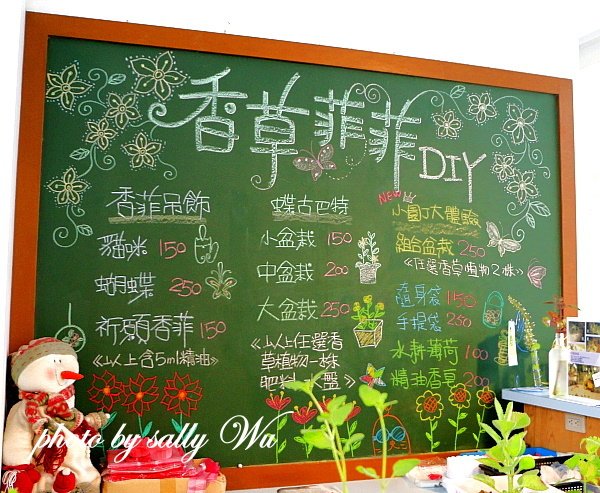 香草菲菲DIY
香菲吊飾
貓咪 150
蝴蝶 250
祈願香菲 150
《以上含5ml精油》
蝶古巴特
小盆栽 150
中盆栽 200
大盆栽 250
《以上任選香
草植物一株
肥料、水盤》
NEW
小園丁大體驗
組合盆栽 250
《任選香草植物2株》
隨身袋 150
手提袋 250
水耕薄荷 100
精油香皂 200
photo by sally Wu